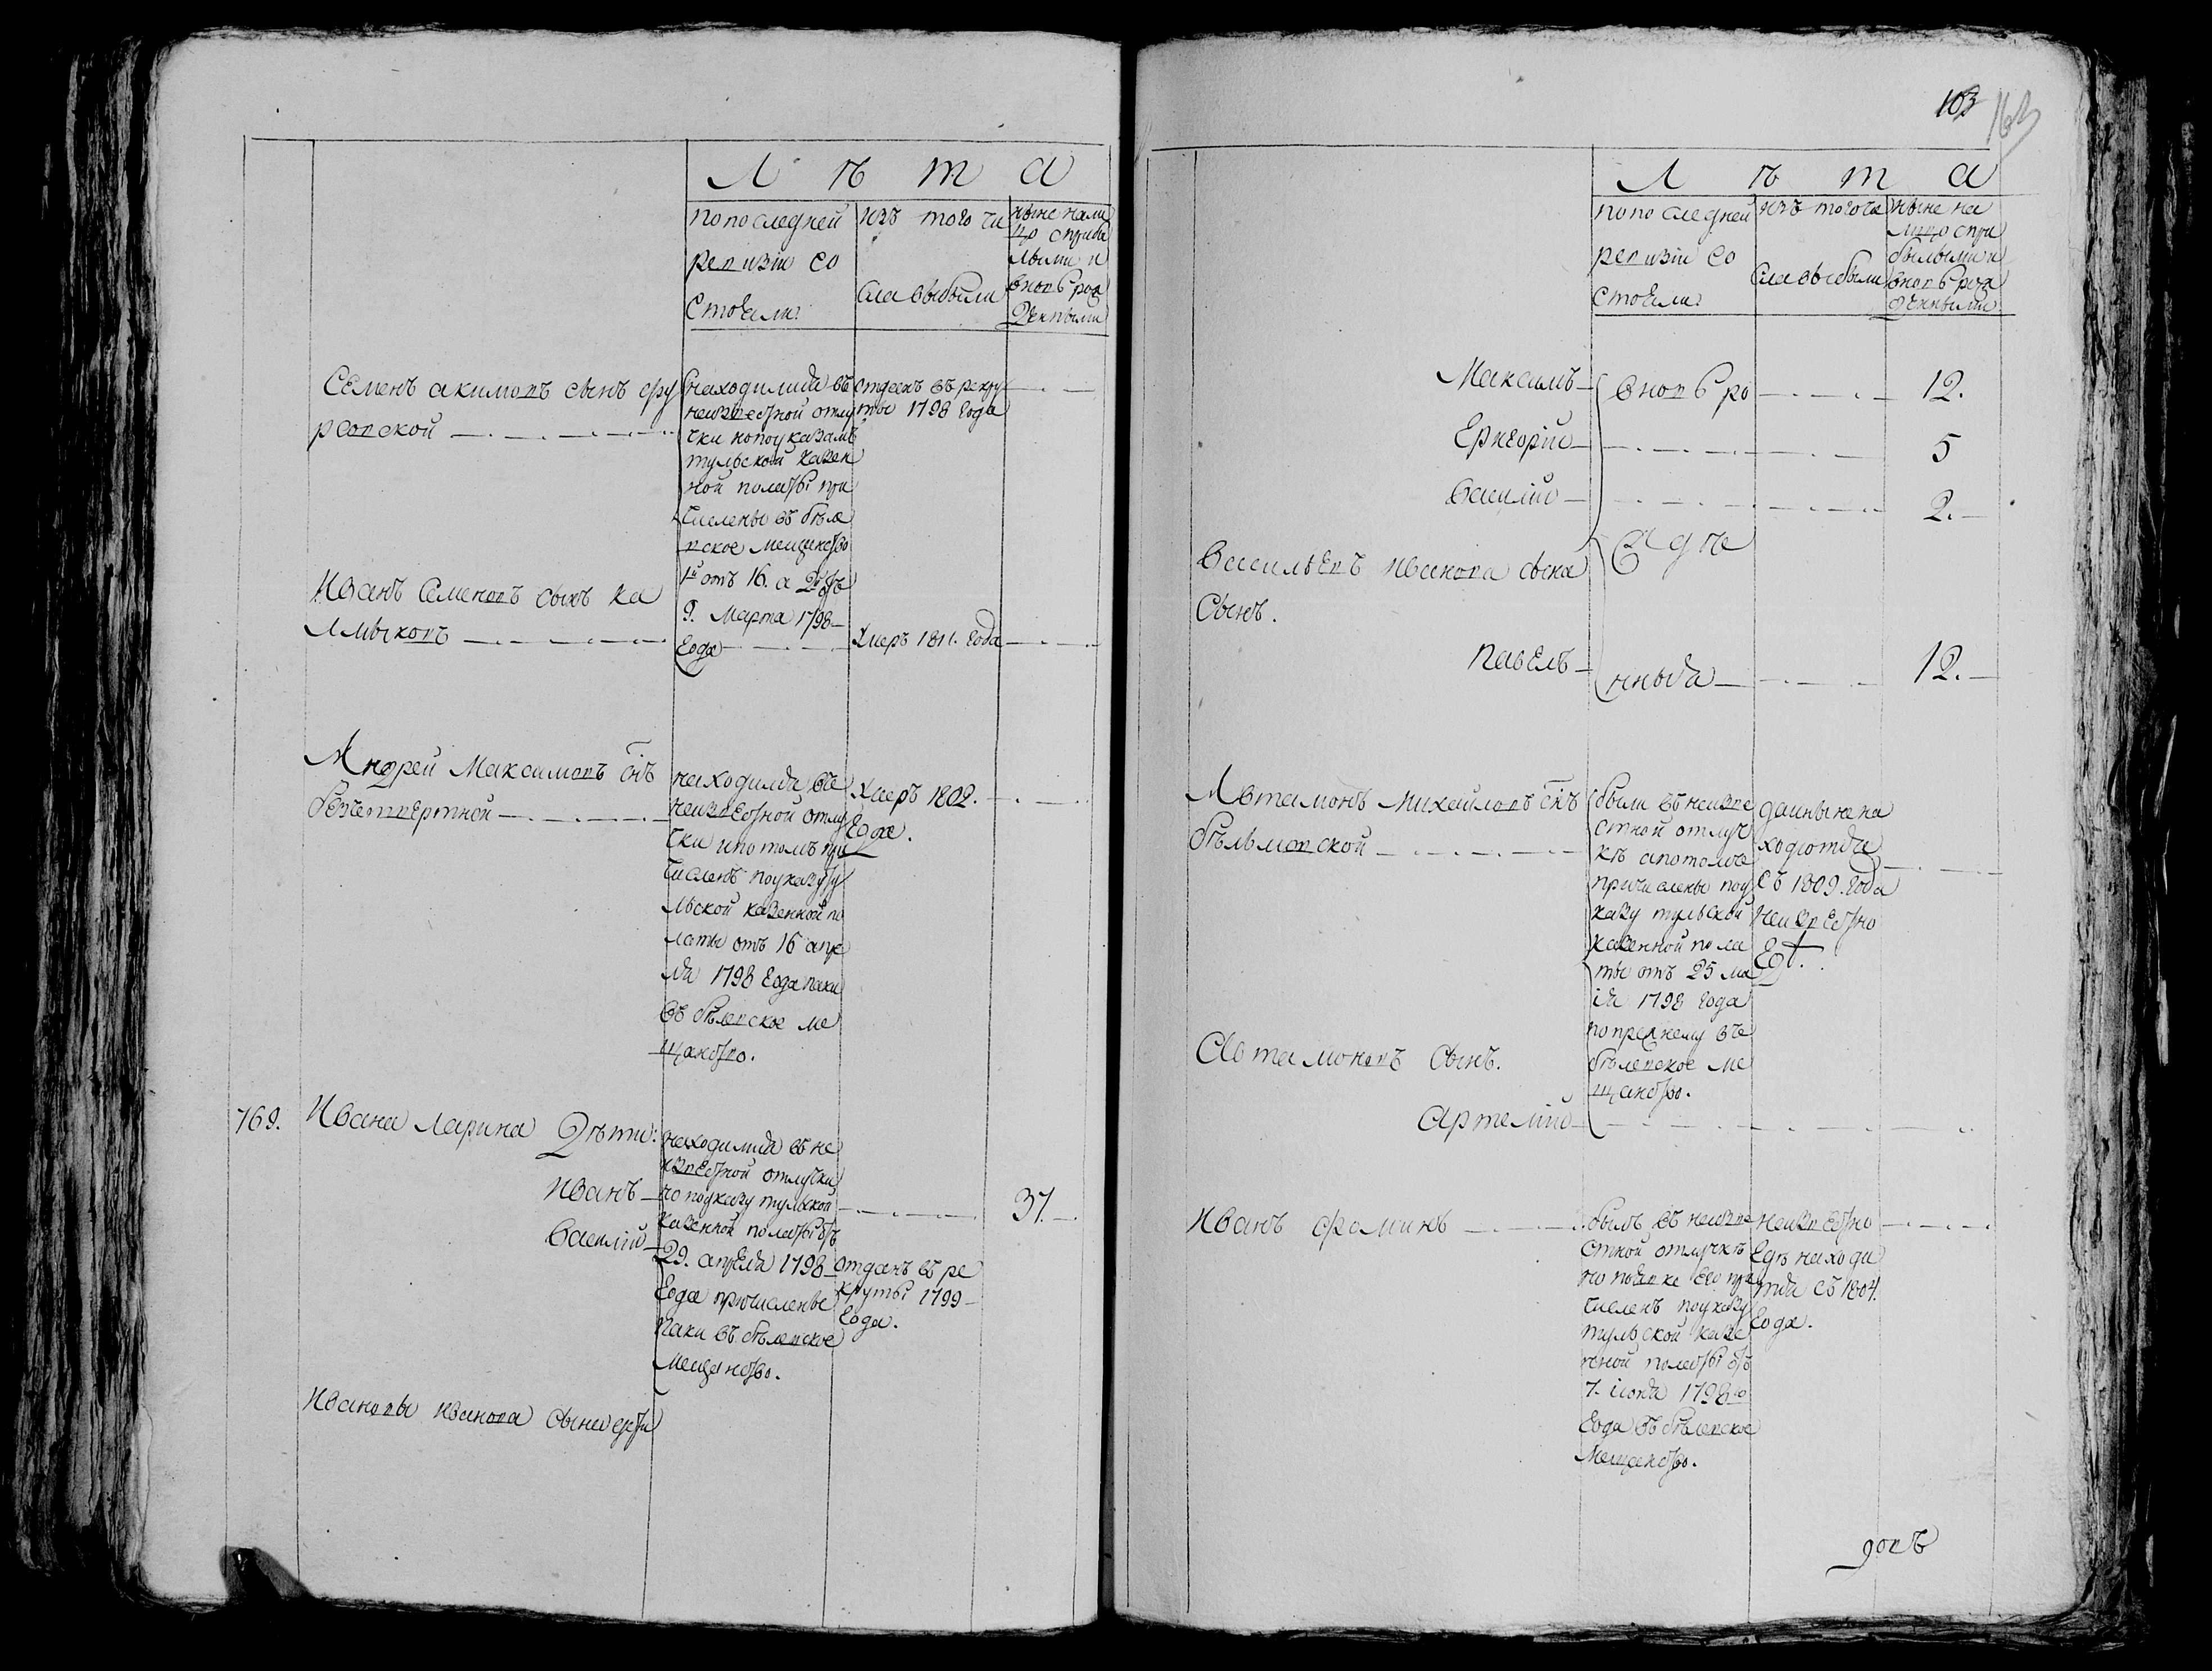 Лѣта
по последней
ревизіи со
стояли
изъ того чи
сла выбыли
ныне нали
цо с прибы
лыми и
вновь рож
денными
Семенъ акимовъ сынъ фу
рсовской
находились въ
неизвестной отлу
чки но по указамъ
тульской казен
ной полаты при
числены въ бѣле
вское мещанство
1й отъ 16. а 2й отъ
9. Марта 1798
года
отданъ въ рекру
ты 1798 года
Иванъ Семеновъ сынъ ка
лмыковъ
умеръ 1811. года
Андрей Максимовъ снъ
безчетвертной
находился въ
неизвестной отлу
чки и потомъ при
численъ по указу ту
льской казенной по
латы отъ 16 апре
ля 1798 года паки
въ бѣлевское ме
щанство.
умеръ 1802.
года.
769.
Ивана Ларина дѣти:
Иванъ
Василій
находились въ не
известной отлучки
но по указу тульской
казенной полаты отъ
29. апреля 1798
года причислены
паки въ бѣлевское
мещанство.
37.
отданъ въ ре
круты 1799
года.
Ивановы иванова сына дети
103
163
Лѣта
по последней
ревизіи со
стояли
изъ того чи
сла выбыли
ныне на
лицо с при
былыми и
вновь рож
денными
Максимъ
вновь ро
12.
Григорій
5
Василій
2.
Васильевъ иванова сына
Сынъ.
жде
Павелъ
нныя
12.
Автамонъ Михайловъ снъ
бѣльмовской
были въ неизве
стной отлуч
кѣ а потомъ
причислены по у
казу тульской
казенной пола
ты отъ 25 ма
ія 1798 года
по прежнему въ
бѣлевское ме
щанство.
да и ныне на
ходются
съ 1809. года
неизвестно
где.
Автамоновъ Сынъ.
Артемій
Иванъ фоминъ
былъ въ неизве
стной отлучкѣ
но по явке его при
численъ по указу
тульской казе
нной полаты отъ
7. іюня 1798го
года въ бѣлевское
мещанство.
неизвестно
гдѣ находи
тся съ 1804.
года.
довъ